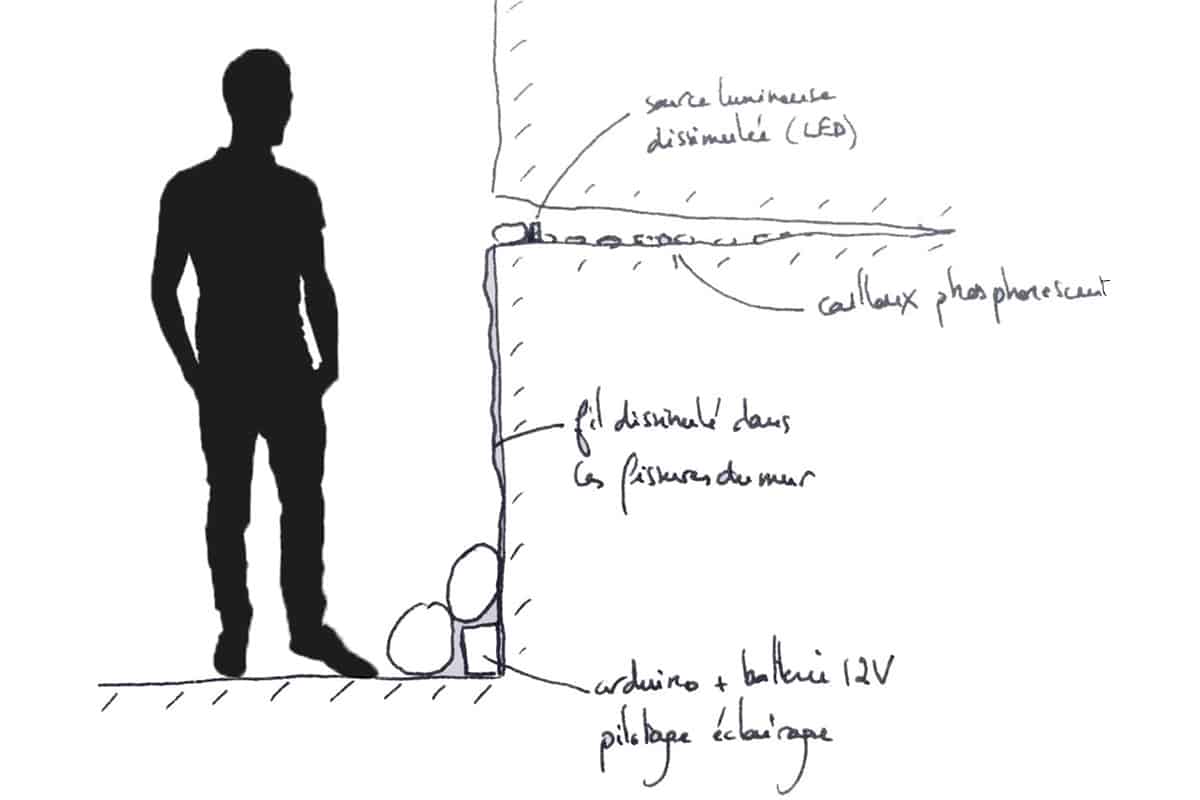 source lumineuse
dissimulée (LED)
cailloux phosphorescent
fil dissimulé dans
les fissures du mur
arduino + batterie 12V
pilotage éclairage